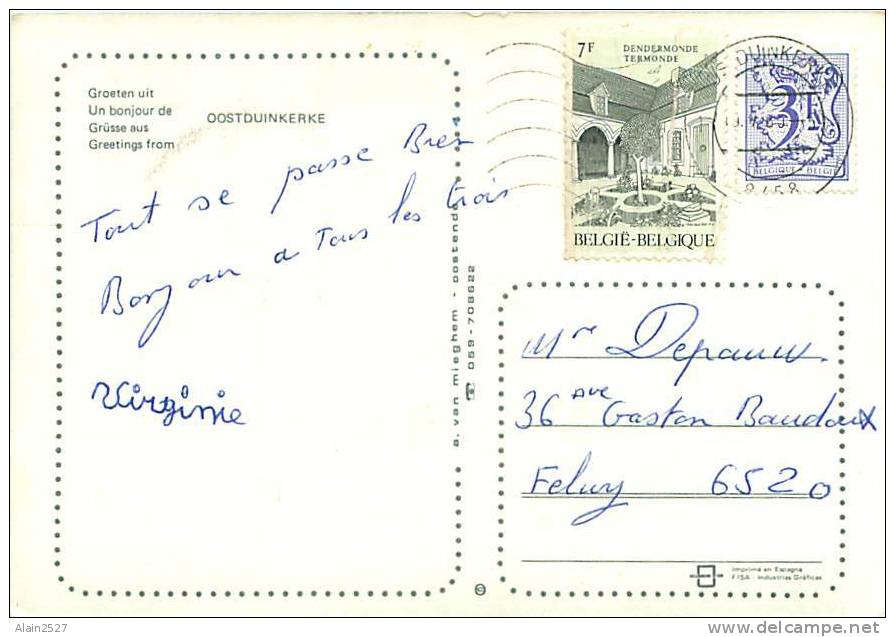 Groeten uit
Un bonjour de
Grüsse aus
Greetings from
OOSTDUINKERKE
Tout se passe Bien
Bonjour a Tous les trois
Virginie
a. van mieghem - oostende
☎ 059-708622
7F
DENDERMONDE
TERMONDE
BELGIË-BELGIQUE
3F
BELGIQUE BELGIË
8458
Mme Depauw.
36 Ave Gaston Baudoux
Feluy 6520
Imprimé en Espagne
FISA - Industrias Gráficas
Alain2527
www.delcampe.net